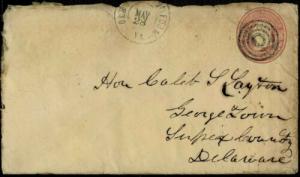 MAY
28
Hon Caleb S Layton
George Town
Sussex County
Delaware